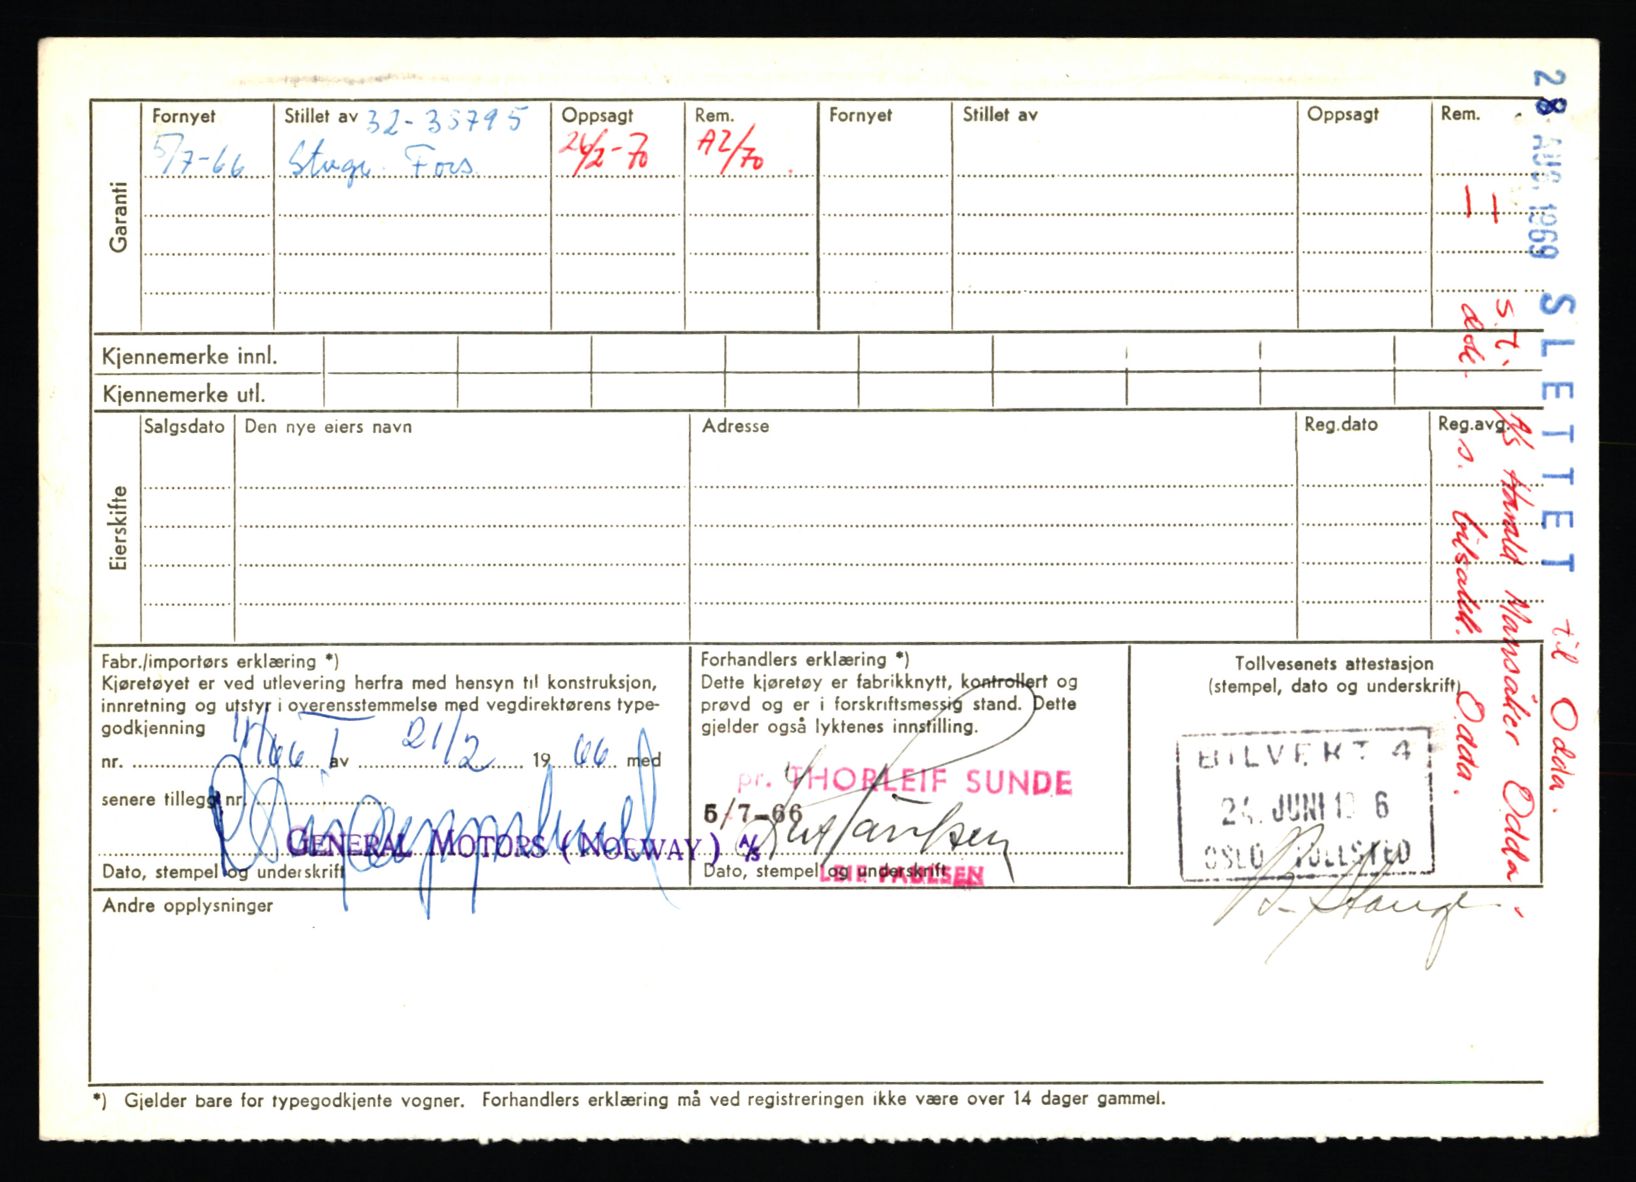 Garanti
Fornyet Stillet av Oppsagt Rem. Fornyet Stillet av Oppsagt Rem.
32-35795
5/7-66 Fors. 26/2-70 A2/70
Kjennemerke innl.
Kjennemerke utl.
Eierskifte
Salgsdato Den nye eiers navn Adresse Reg.dato Reg.avg.
Fabr./importørs erklæring *)
Kjøretøyet er ved utlevering herfra med hensyn til konstruksjon,
innretning og utstyr i overensstemmelse med vegdirektørens type-
godkjenning
nr. av 21/2 1966 med
senere tillegg nr.
GENERAL MOTORS (NORWAY) A/S
Dato, stempel og underskrift
Forhandlers erklæring *)
Dette kjøretøy er fabrikknytt, kontrollert og
prøvd og er i forskriftsmessig stand. Dette
gjelder også lyktenes innstilling.
pr. THORLEIF SUNDE
5/7-66
Dato, stempel og underskrift
Tollvesenets attestasjon
(stempel, dato og underskrift)
BILVERT 4
24. JUNI 19 6
OSLO TOLLSTED
Andre opplysninger
*) Gjelder bare for typegodkjente vogner. Forhandlers erklæring må ved registreringen ikke være over 14 dager gammel.
28 AUG. 1969 SLETTET til Odda.
S.T. A/S Harald Mansåker Odda.
s. bilsakk. Odda.